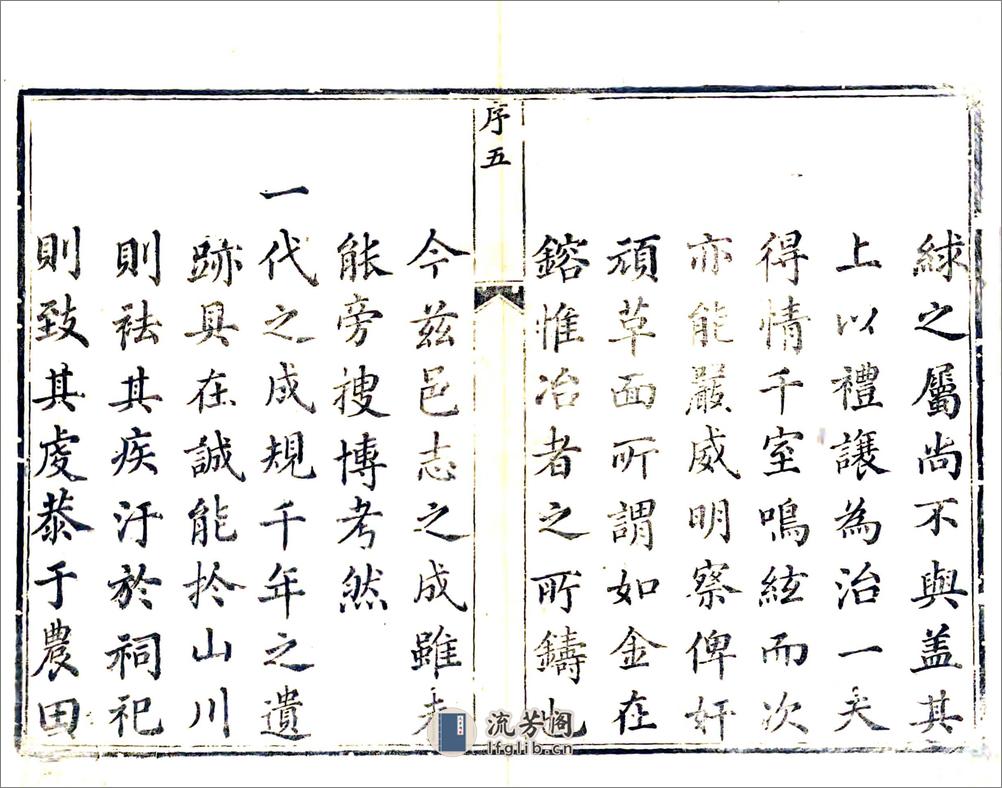 絿之屬尚不與盖其
上以禮讓為治一夫
得情千室鳴絃而次
亦能嚴威明察俾奸
頑革面所謂如金在
鎔惟冶者之所鑄也
序五
今兹邑志之成雖未
能旁搜博考然
一代之成規千年之遺
跡具在誠能扵山川
則祛其疾汙於祠祀
則致其虔恭于農田
流芳阁
lfglib.cn